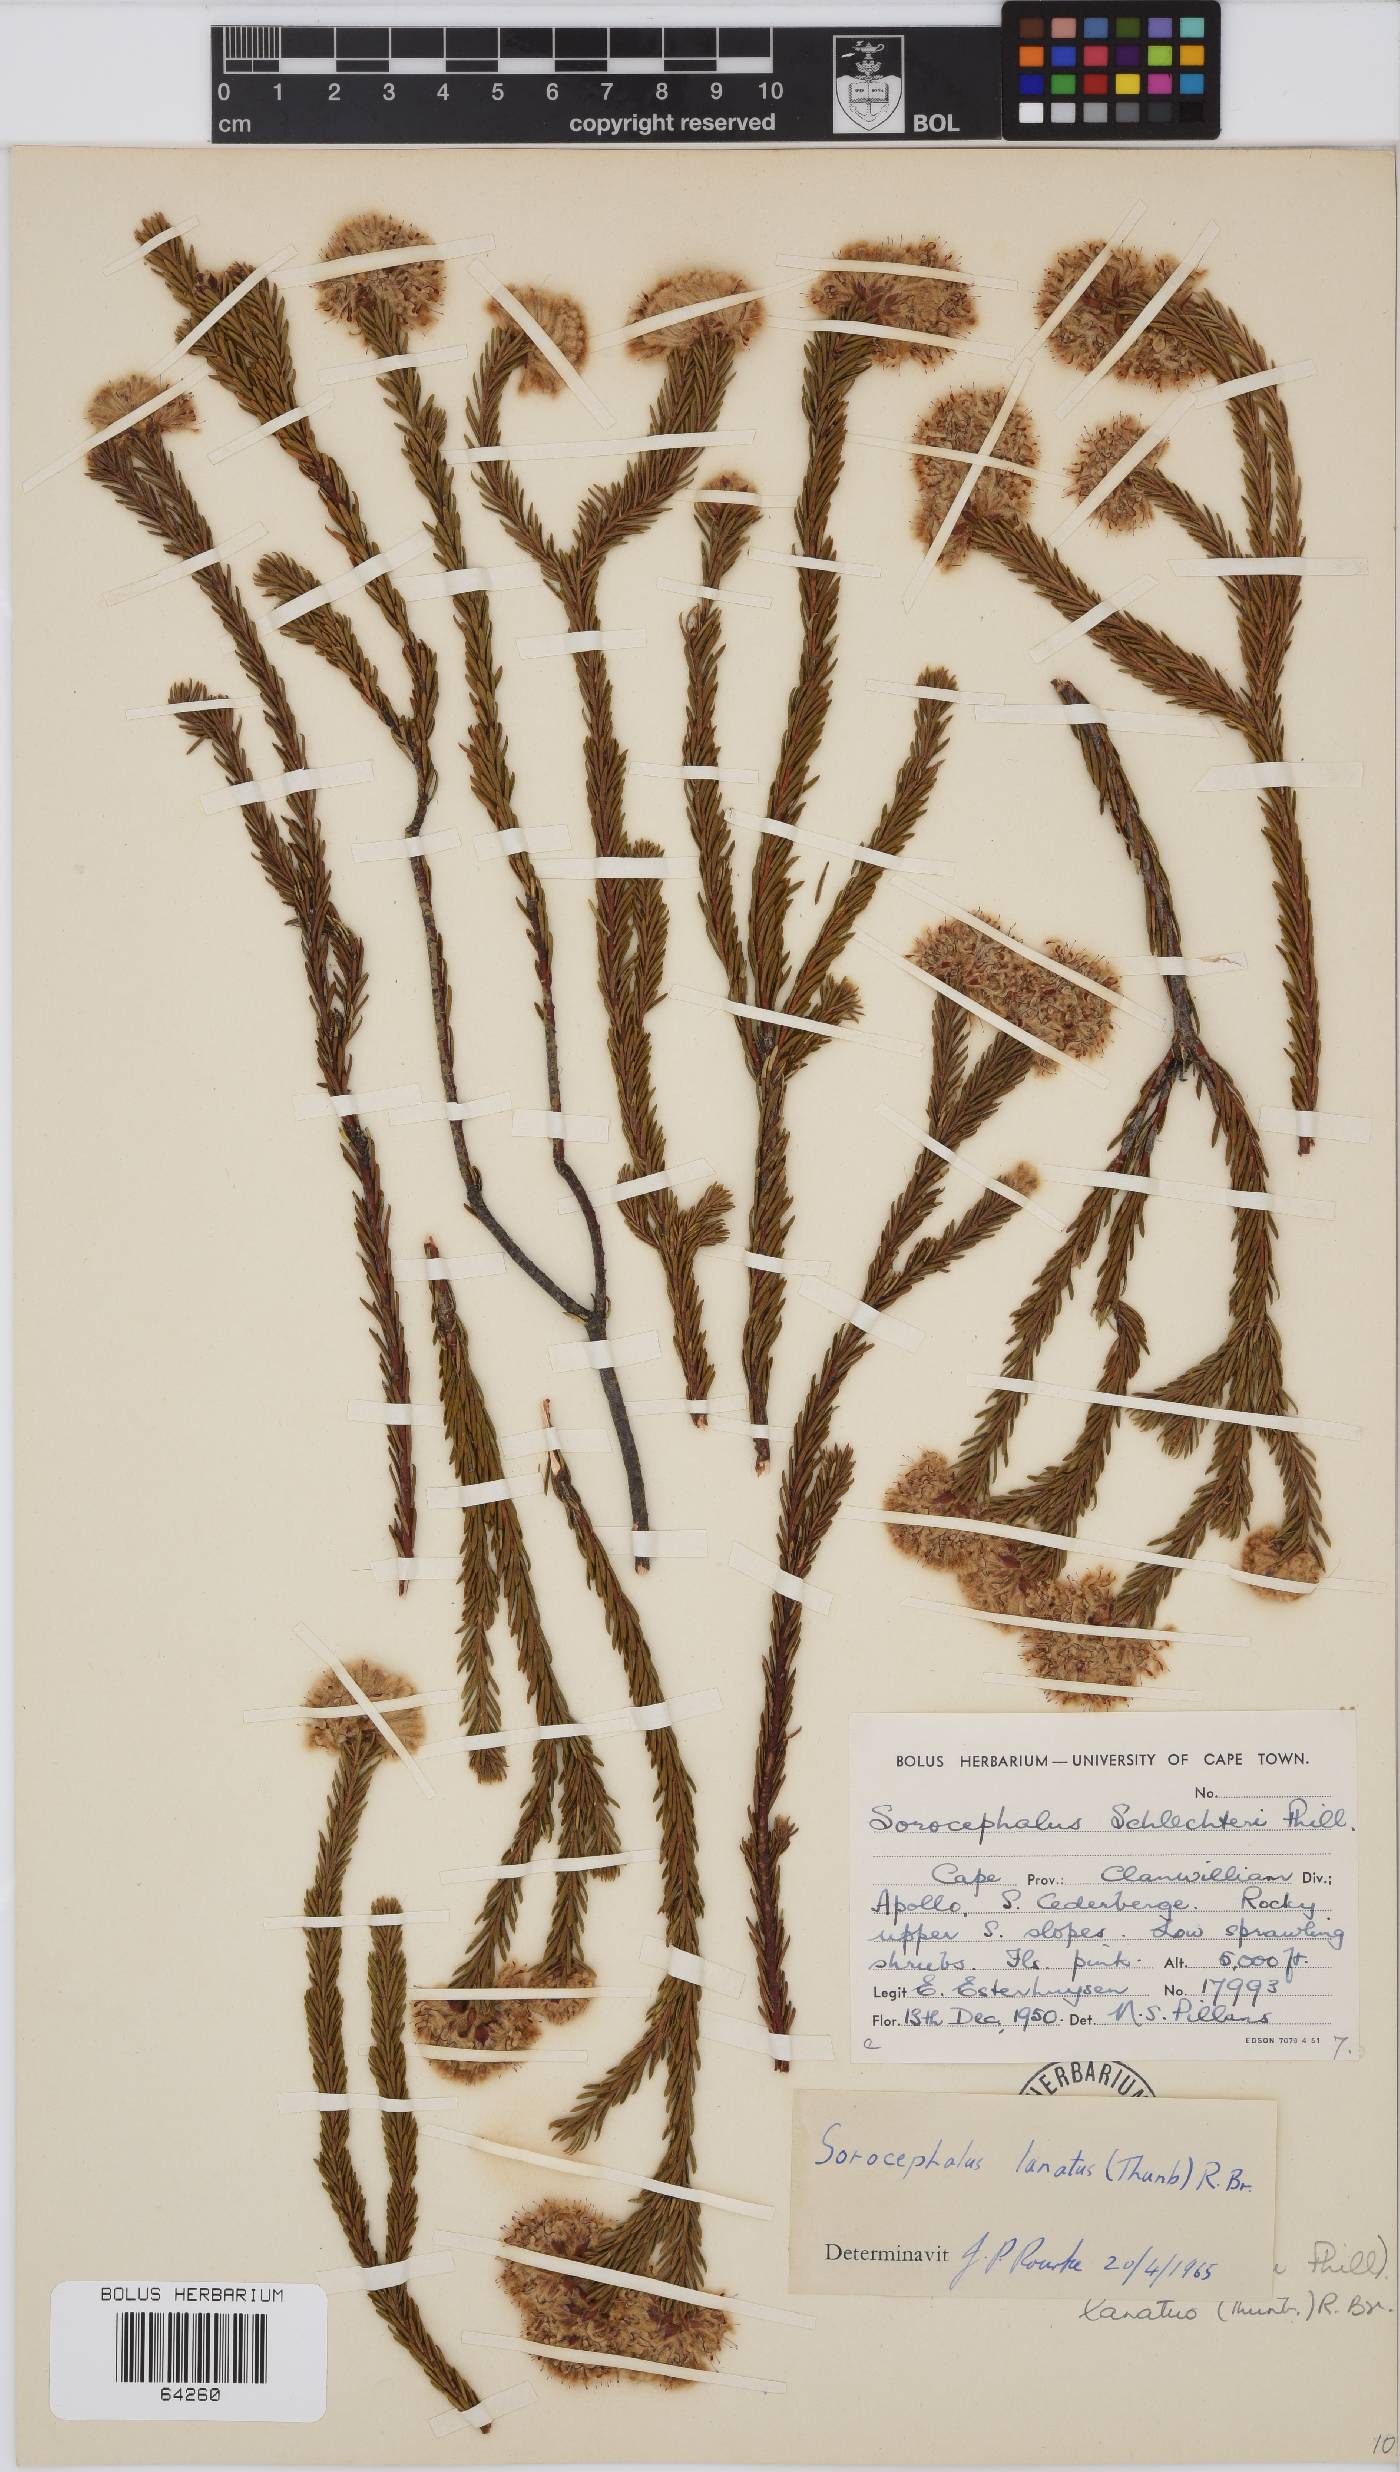 0 1 2 3 4 5 6 7 8 9 10
cm
copyright reserved
BOL
BOLUS HERBARIUM—UNIVERSITY OF CAPE TOWN.
No.
Sorocephalus Schlechteri Phill.
Cape Prov.: Clanwilliam Div.;
Apollo, S. Cederberge. Rocky
upper S. slopes. Low sprawling
shrubs. Fls. pink. Alt. 5,000 ft.
Legit E. Esterhuysen No. 17993
Flor. 13th Dec, 1950. Det. N.S. Pillans
EDSON 7079 4 51
7.
HERBARIUM
Sorocephalus lanatus (Thunb) R. Br.
Determinavit J.P. Rourke 20/4/1965
Phill).
lanatus (Thunb.) R. Br.
BOLUS HERBARIUM
64260
10